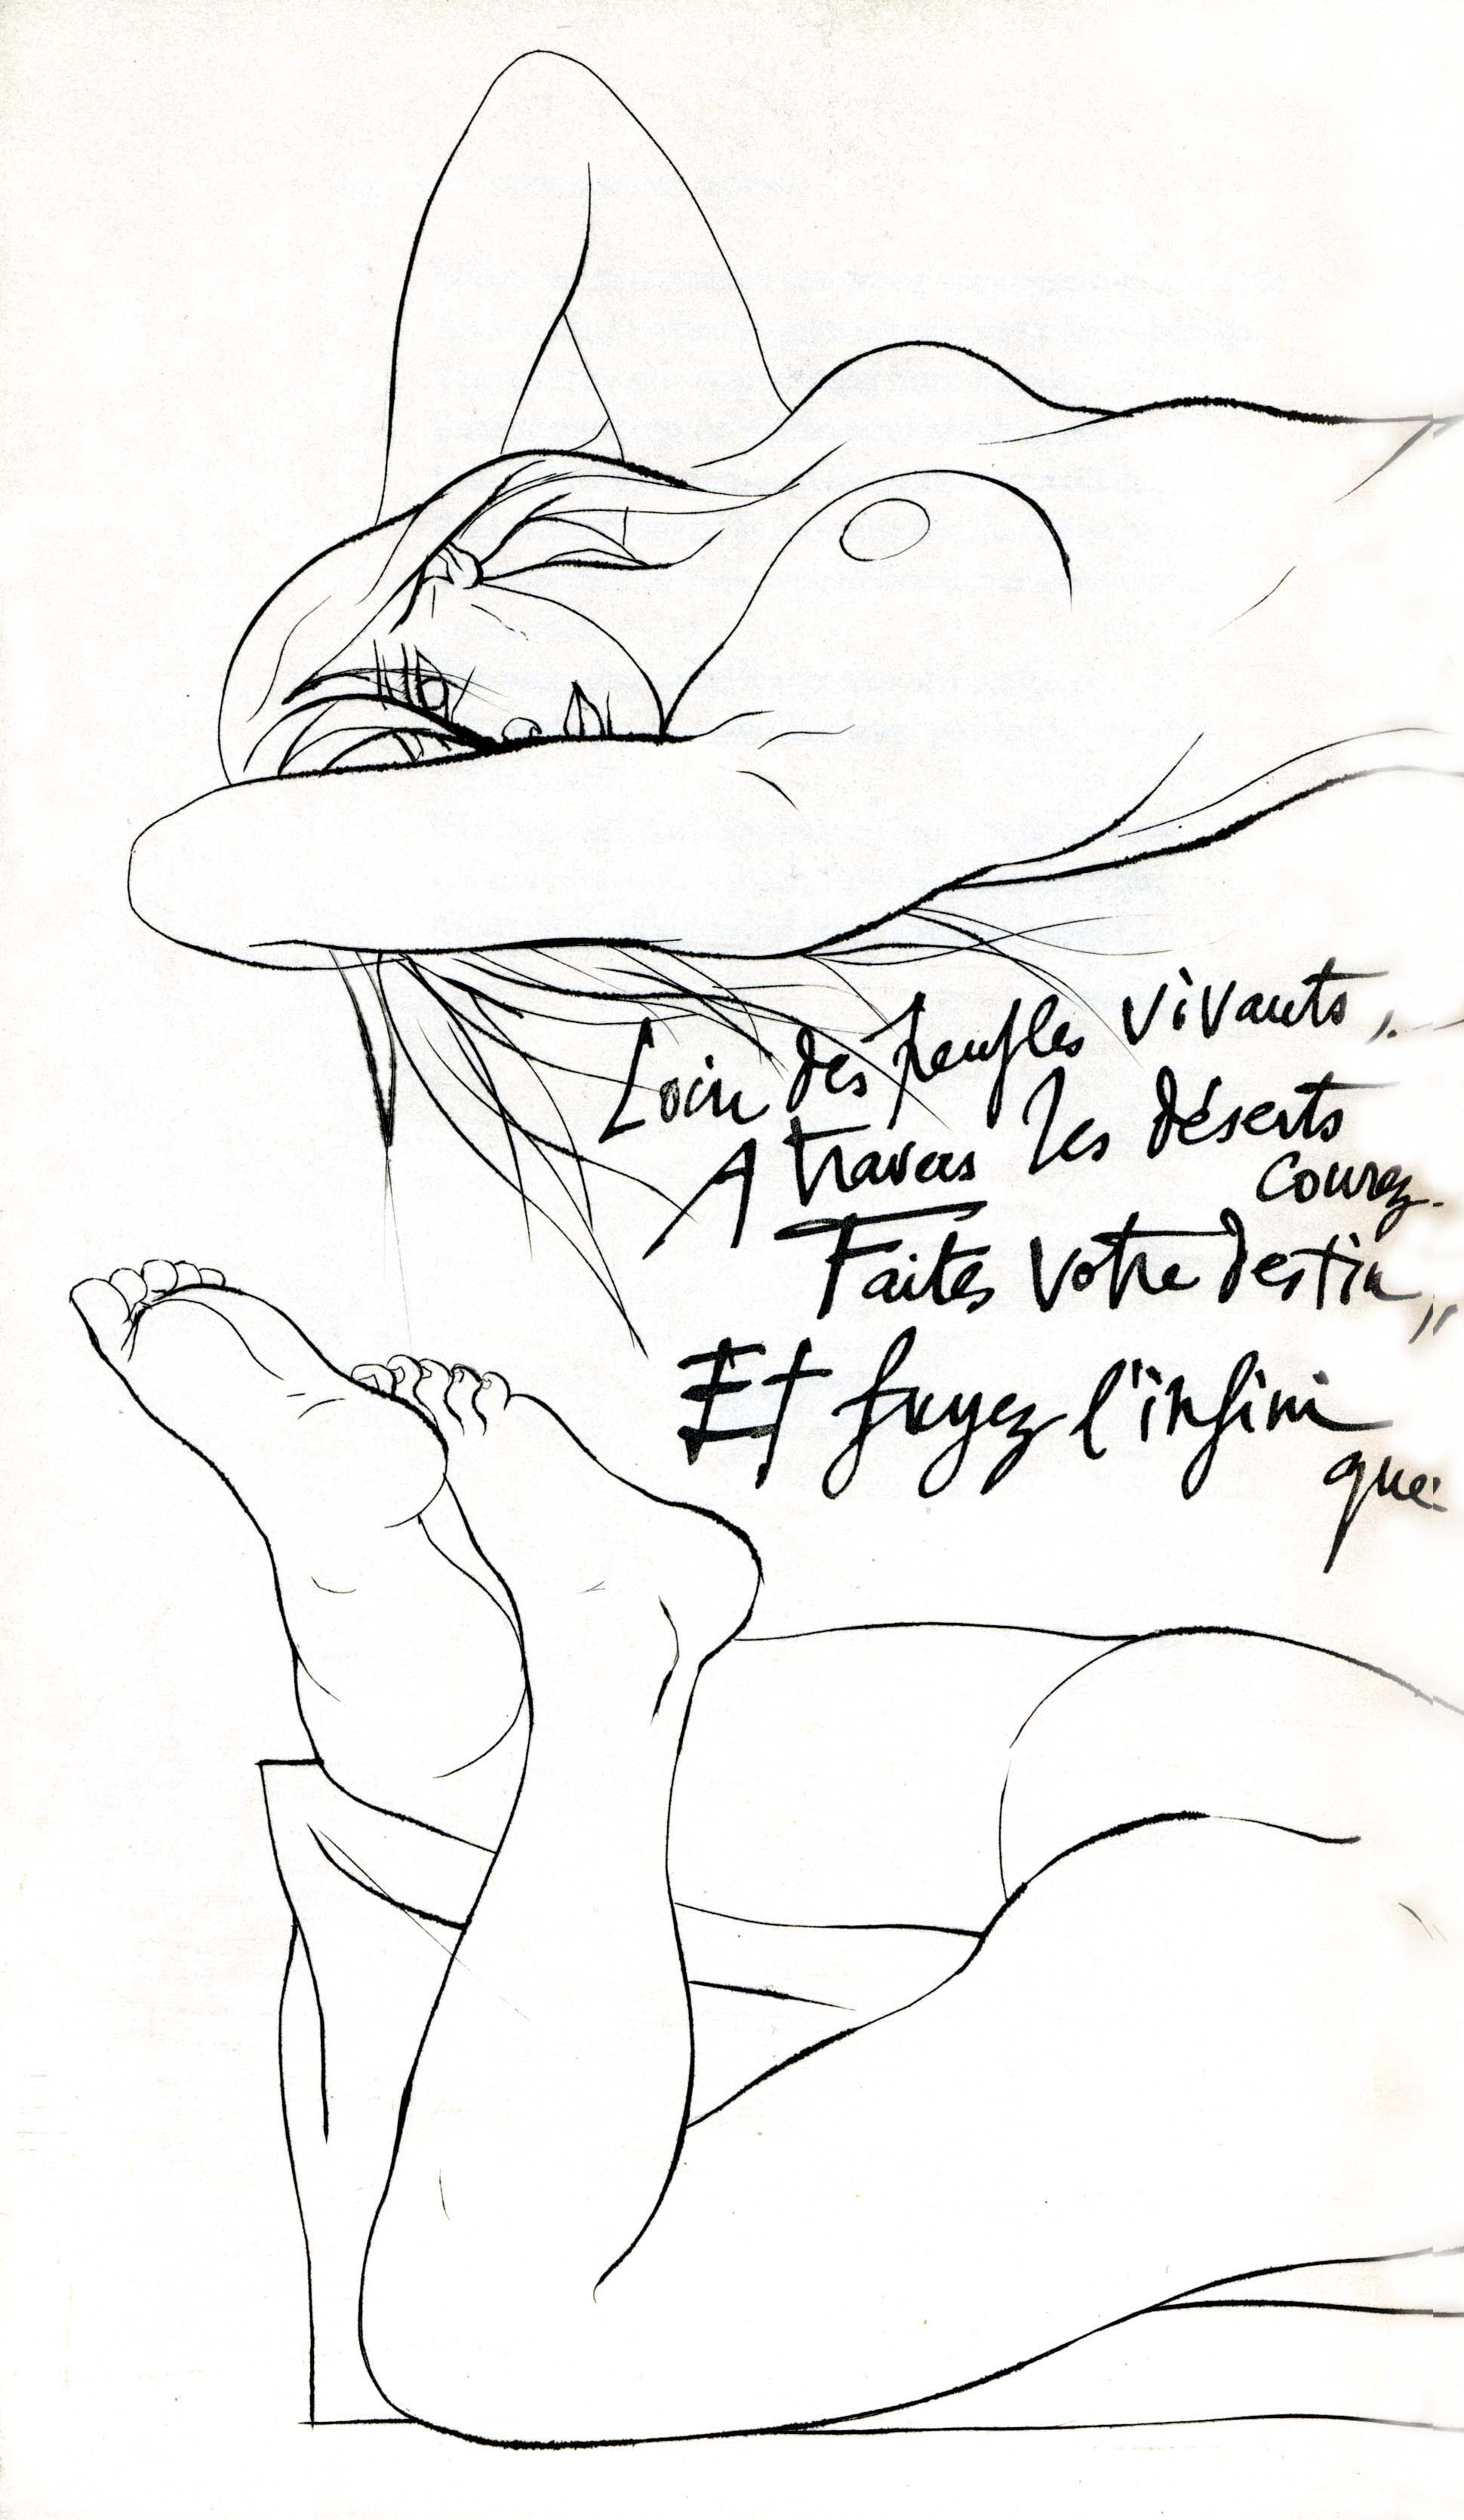 Loin des peuples vivants,
A travers les déserts
courez.
Faites votre destin,,
Et fuyez l'infini
que